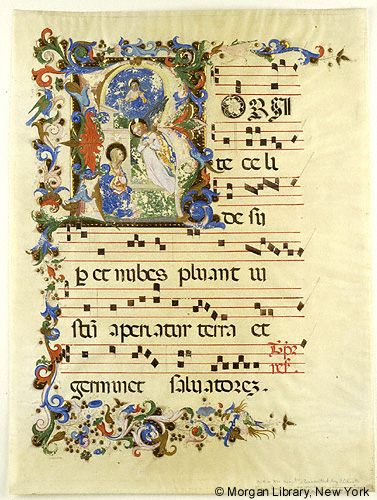 RORA
te celi
de su
p et nubes pluant iu
stuʒ aperiatur terra et
germinet saluatoreʒ.
© Morgan Library, New York